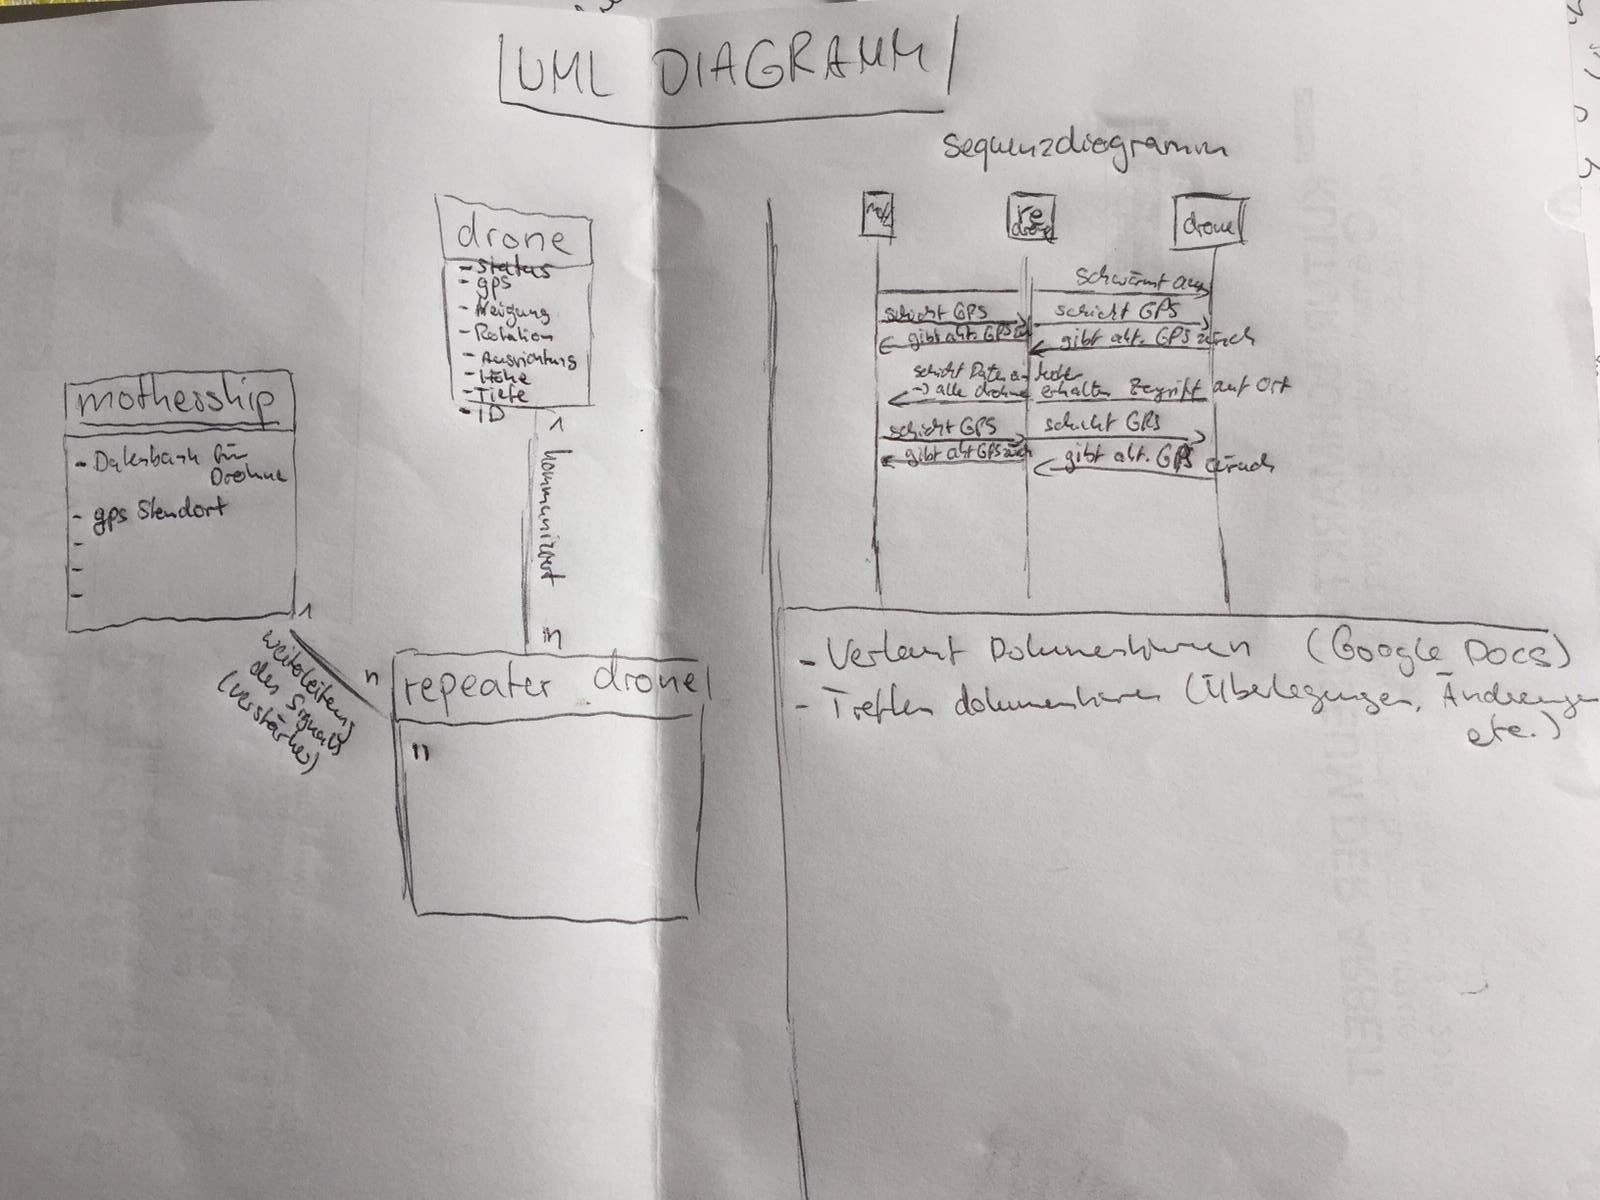 UML DIAGRAMM
drone
- status
- gps
- Neigung
- Rotation
- Ausrichtung
- Höhe
- Tiefe
- ID
1
kommuniziert
n
mothership
- Datenbank für
Drohne
- gps Standort
-
-
-
1
weiterleitung
des Signals
(verstärker)
n
repeater drone
"
Sequenzdiagramm
drone
schwärmt aus
schickt GPS
schickt GPS
gibt akt. GPS
gibt akt. GPS zurück
schickt Daten an
-> alle drohnen erhalten Zugriff auf Ort
schickt GPS
schickt GPS
gibt akt GPS zurück
gibt akt. GPS zurück
- Verlauf Dokumentieren (Google Docs)
- Treffen dokumentieren (Überlegungen, Änderungen
etc.)